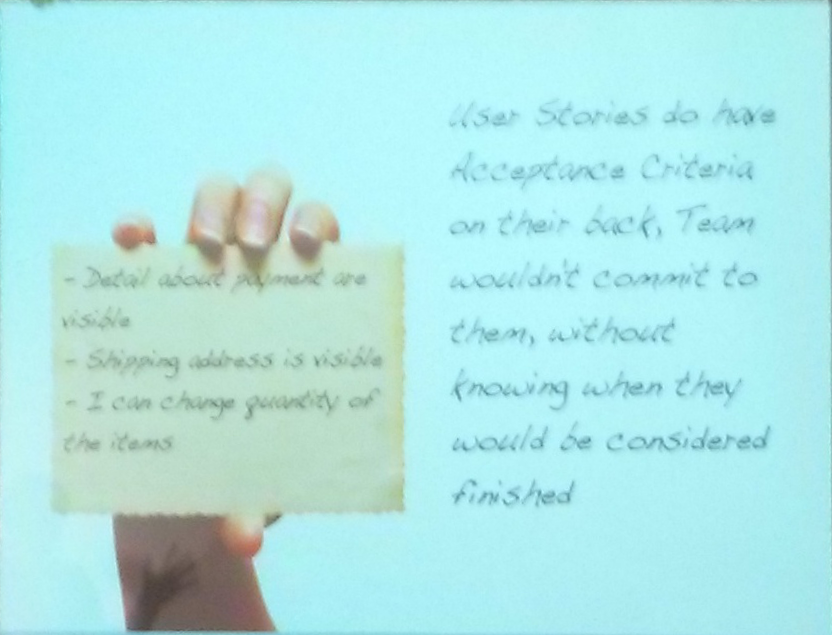 - Detail about payment are
visible
- Shipping address is visible
- I can change quantity of
the items
User Stories do have
Acceptance Criteria
on their back, Team
wouldn't commit to
them, without
knowing when they
would be considered
finished